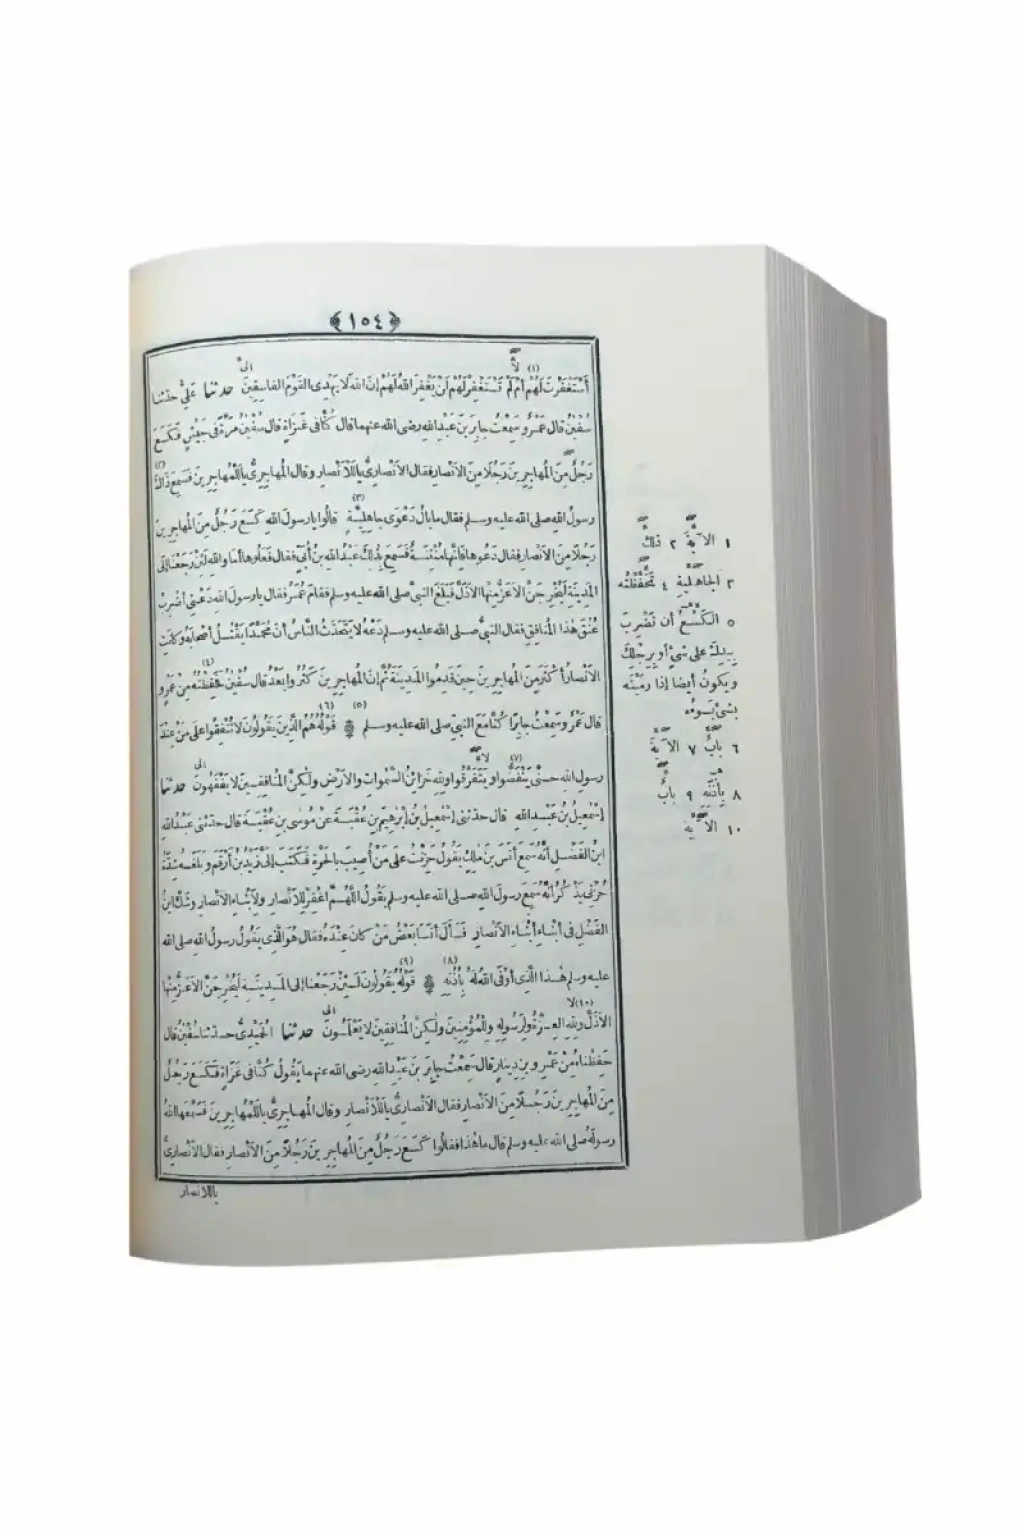 ﴿١٥٤﴾
أَسْتَغْفَرْتَ لَهُمْ أَمْ لَمْ تَسْتَغْفِرْ لَهُمْ لَنْ يَغْفِرَ اللهُ لَهُمْ إِنَّ اللهَ لَا يَهْدِى القَوْمَ الفَاسِقِينَ حدثنا عَلِيٌّ حدثنا
سُفْيٰنُ قال عَمْرٌو سَمِعْتُ جابِرَ بنَ عَبْدِ اللهِ رضى الله عنهما قال كُنَّا فى غَزَاةٍ قال سُفْيٰنُ مَرَّةً فى جَيْشٍ فَكَسَعَ
رَجُلٌ مِنَ المُهاجِرِينَ رَجُلًا مِنَ الأَنْصارِ فقال الأَنْصارِيُّ يا لَلْأَنْصارِ وقال المُهاجِرِيُّ يا لَلْمُهاجِرِينَ فَسَمِعَ ذَاكَ (٢)
رسولُ الله صلى الله عليه وسلم فقال ما بالُ دَعْوَى جاهِلِيَّةٍ (٣) قالُوا يا رسولَ اللهِ كَسَعَ رَجُلٌ مِنَ المُهاجِرِينَ
رَجُلًا مِنَ الأَنْصارِ فقال دَعُوها فَإِنَّها مُنْتِنَةٌ فَسَمِعَ بِذٰلِكَ عَبْدُ اللهِ بنُ أُبَيٍّ فقال فَعَلُوها أَما واللهِ لَئِنْ رَجَعْنا إلَى
المَدِينَةِ لَيُخْرِجَنَّ الأَعَزُّ مِنْها الأَذَلَّ فَبَلَغَ النبىَّ صلى الله عليه وسلم فقامَ عُمَرُ فقال يا رسولَ اللهِ دَعْنِى أَضْرِبْ
عُنُقَ هٰذا المُنافِقِ فقال النبىُّ صلى الله عليه وسلم دَعْهُ لا يَتَحَدَّثُ النَّاسُ أَنَّ مُحَمَّدًا يَقْتُلُ أَصْحابَهُ وكانَتِ
الأَنْصارُ أَكْثَرَ مِنَ المُهاجِرِينَ حِينَ قَدِمُوا المَدِينَةَ ثُمَّ إنَّ المُهاجِرِينَ كَثُرُوا بَعْدُ قال سُفْيٰنُ فَحَفِظْتُهُ (٤) مِنْ عَمْرٍو
قال عَمْرٌو سَمِعْتُ جابِرًا كُنَّا مَعَ النبىِّ صلى الله عليه وسلم (٥) (٦) قَوْلُهُ هُمُ الَّذِينَ يَقُولُونَ لا تُنْفِقُوا على مَنْ عِنْدَ
رسولِ اللهِ حتَّى يَنْفَضُّوا (٧) ويَتَفَرَّقُوا وللهِ خَزَائِنُ السَّمٰواتِ والأَرْضِ ولٰكِنَّ المُنافِقِينَ لا يَفْقَهُونَ حدثنا
إسْمٰعِيلُ بنُ عَبْدِ اللهِ قال حدثنى إسْمٰعِيلُ بنُ إبْرٰهِيمَ بنِ عُقْبَةَ عنْ مُوسَى بنِ عُقْبَةَ قال حدثنى عَبْدُ اللهِ
ابنُ الفَضْلِ أَنَّهُ سَمِعَ أَنَسَ بنَ مٰلِكٍ يَقُولُ حَزِنْتُ على مَنْ أُصِيبَ بِالحَرَّةِ فَكَتَبَ إلَىَّ زَيْدُ بنُ أَرْقَمَ وبَلَغَهُ شِدَّةُ
حُزْنِى يَذْكُرُ أَنَّهُ سَمِعَ رسولَ اللهِ صلى الله عليه وسلم يَقُولُ اللّٰهُمَّ اغْفِرْ لِلْأَنْصارِ ولِأَبْناءِ الأَنْصارِ وشَكَّ ابنُ
الفَضْلِ فى أَبْناءِ أَبْناءِ الأَنْصارِ فَسَأَلَ أَنَسًا بَعْضُ مَنْ كانَ عِنْدَهُ فقال هُوَ الَّذِى يَقُولُ رسولُ اللهِ صلى الله
عليه وسلم هٰذا الَّذِى أَوْفَى اللهُ لَهُ بِأُذُنِهِ (٨) (٩) قَوْلُهُ يَقُولُونَ لَئِنْ رَجَعْنا إلى المَدِينَةِ لَيُخْرِجَنَّ الأَعَزُّ مِنْها
الأَذَلَّ (١٠) وللهِ العِزَّةُ ولِرَسُولِهِ ولِلْمُؤْمِنِينَ ولٰكِنَّ المُنافِقِينَ لا يَعْلَمُونَ حدثنا الحُمَيْدِىُّ حدثنا سُفْيٰنُ قال
حَفِظْناهُ مِنْ عَمْرِو بنِ دِينارٍ قال سَمِعْتُ جابِرَ بنَ عَبْدِ اللهِ رضى الله عنهما يَقُولُ كُنَّا فى غَزَاةٍ فَكَسَعَ رَجُلٌ
مِنَ المُهاجِرِينَ رَجُلًا مِنَ الأَنْصارِ فقال الأَنْصارِىُّ يا لَلْأَنْصارِ وقال المُهاجِرِىُّ يا لَلْمُهاجِرِينَ فَسَمَّعَها اللهُ
رسولَهُ صلى الله عليه وسلم قال ما هٰذا فقالُوا كَسَعَ رَجُلٌ مِنَ المُهاجِرِينَ رَجُلًا مِنَ الأَنْصارِ فقال الأَنْصارِىُّ
يا للانصار
١ الآيَةَ ٢ ذٰلِكَ
٣ الجاهِلِيَّةِ ٤ تَحَفَّظْتُه
٥ الكَسْعُ أن تَضْرِبَ
بِيدِكَ على شئٍ أو بِرِجْلِكَ
ويكونُ أيضا إذا رَمَيْتَه
بشئ يَسوءُه
٦ بابُ ٧ الآيَةَ
٨ بِأُذُنِهِ ٩ بابُ
١٠ الآيَةَ